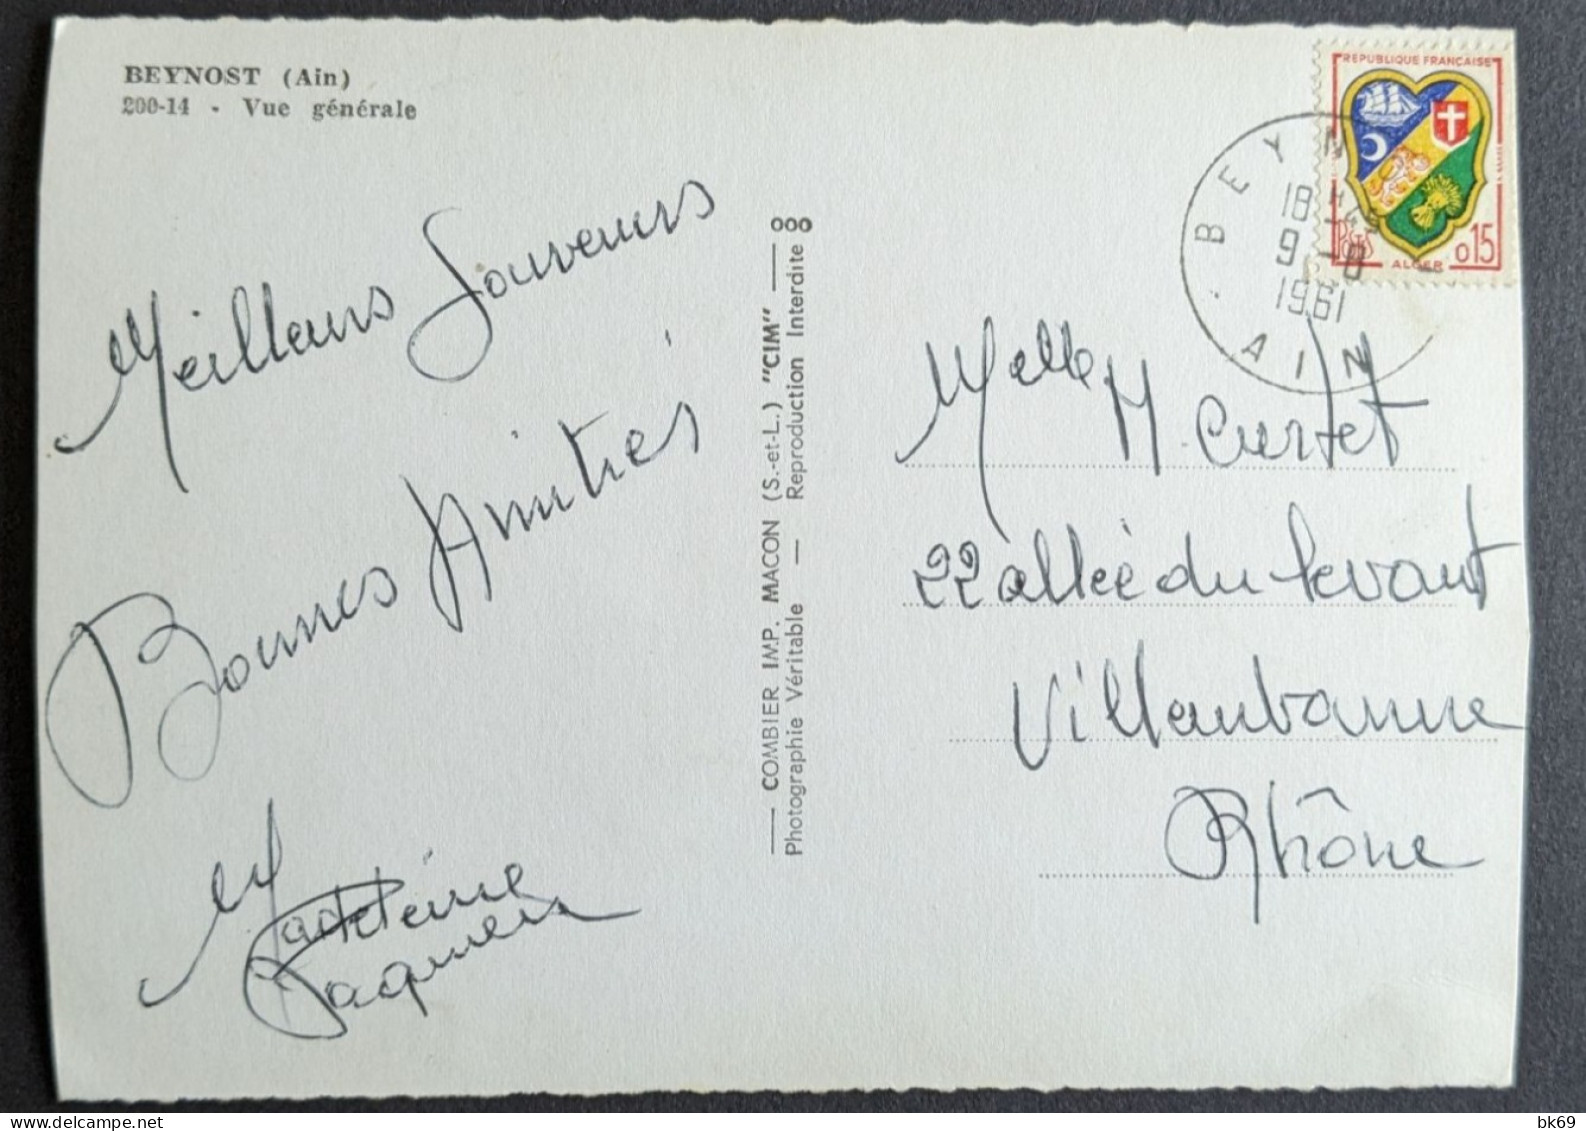 BEYNOST (Ain)
200-14 - Vue générale
Meilleurs Souvenirs
Bonnes Amitiés
Madeleine
COMBIER IMP. MACON (S.-et-L.) "CIM"
Photographie Véritable — Reproduction Interdite
REPUBLIQUE FRANÇAISE
POSTES
ALGER
0,15
BEYN
18 H 45
9 - 8
1961
AIN
Melle M. Curtet
22 allée du levant
Villeurbanne
Rhône
delcampe.net
bk69